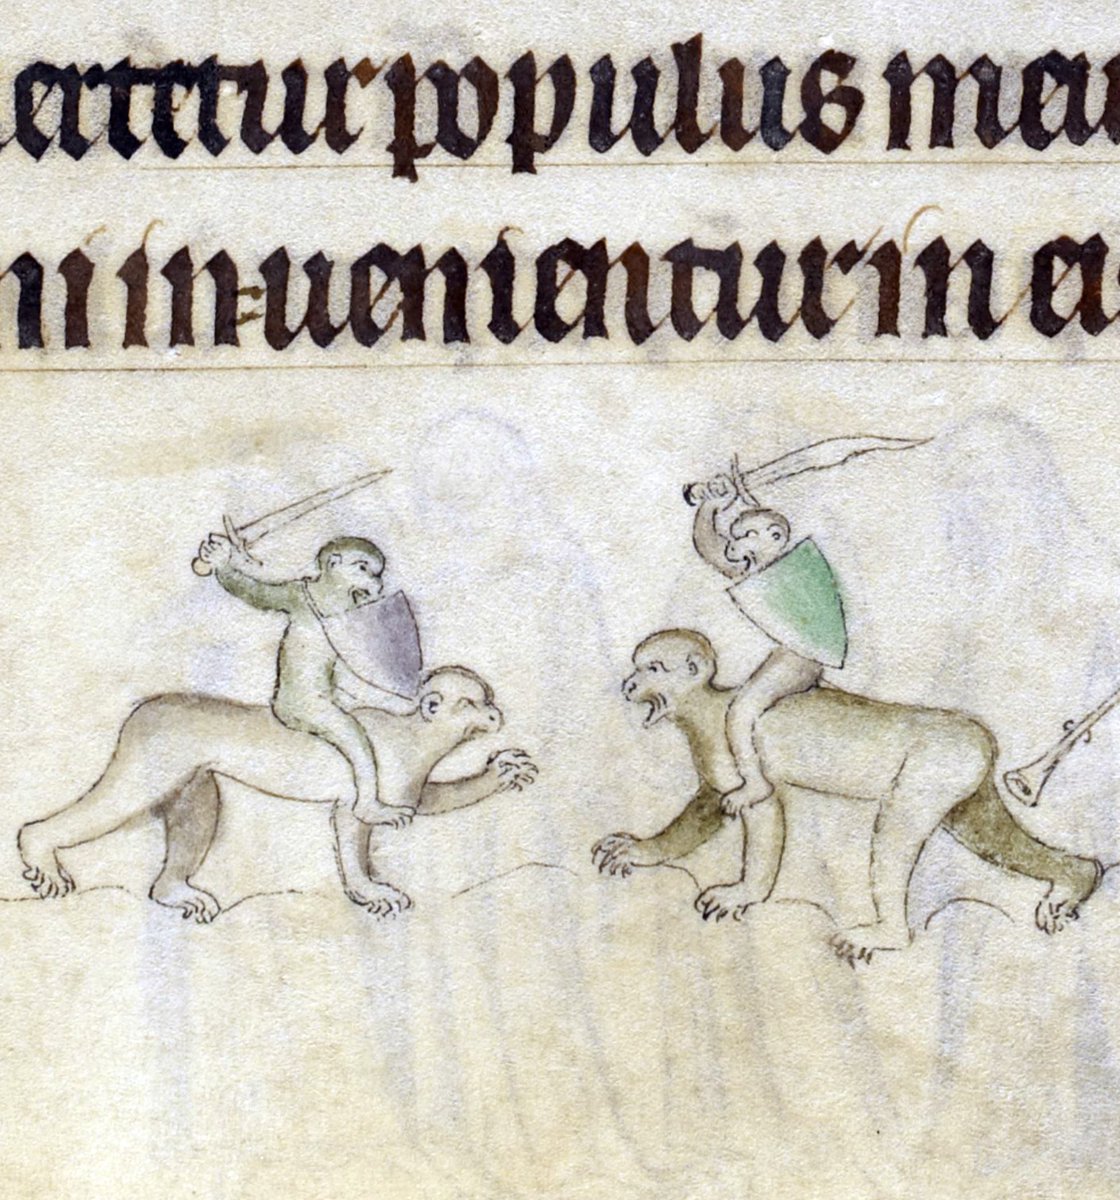 ertetur populus meu
ni inuenientur in ei